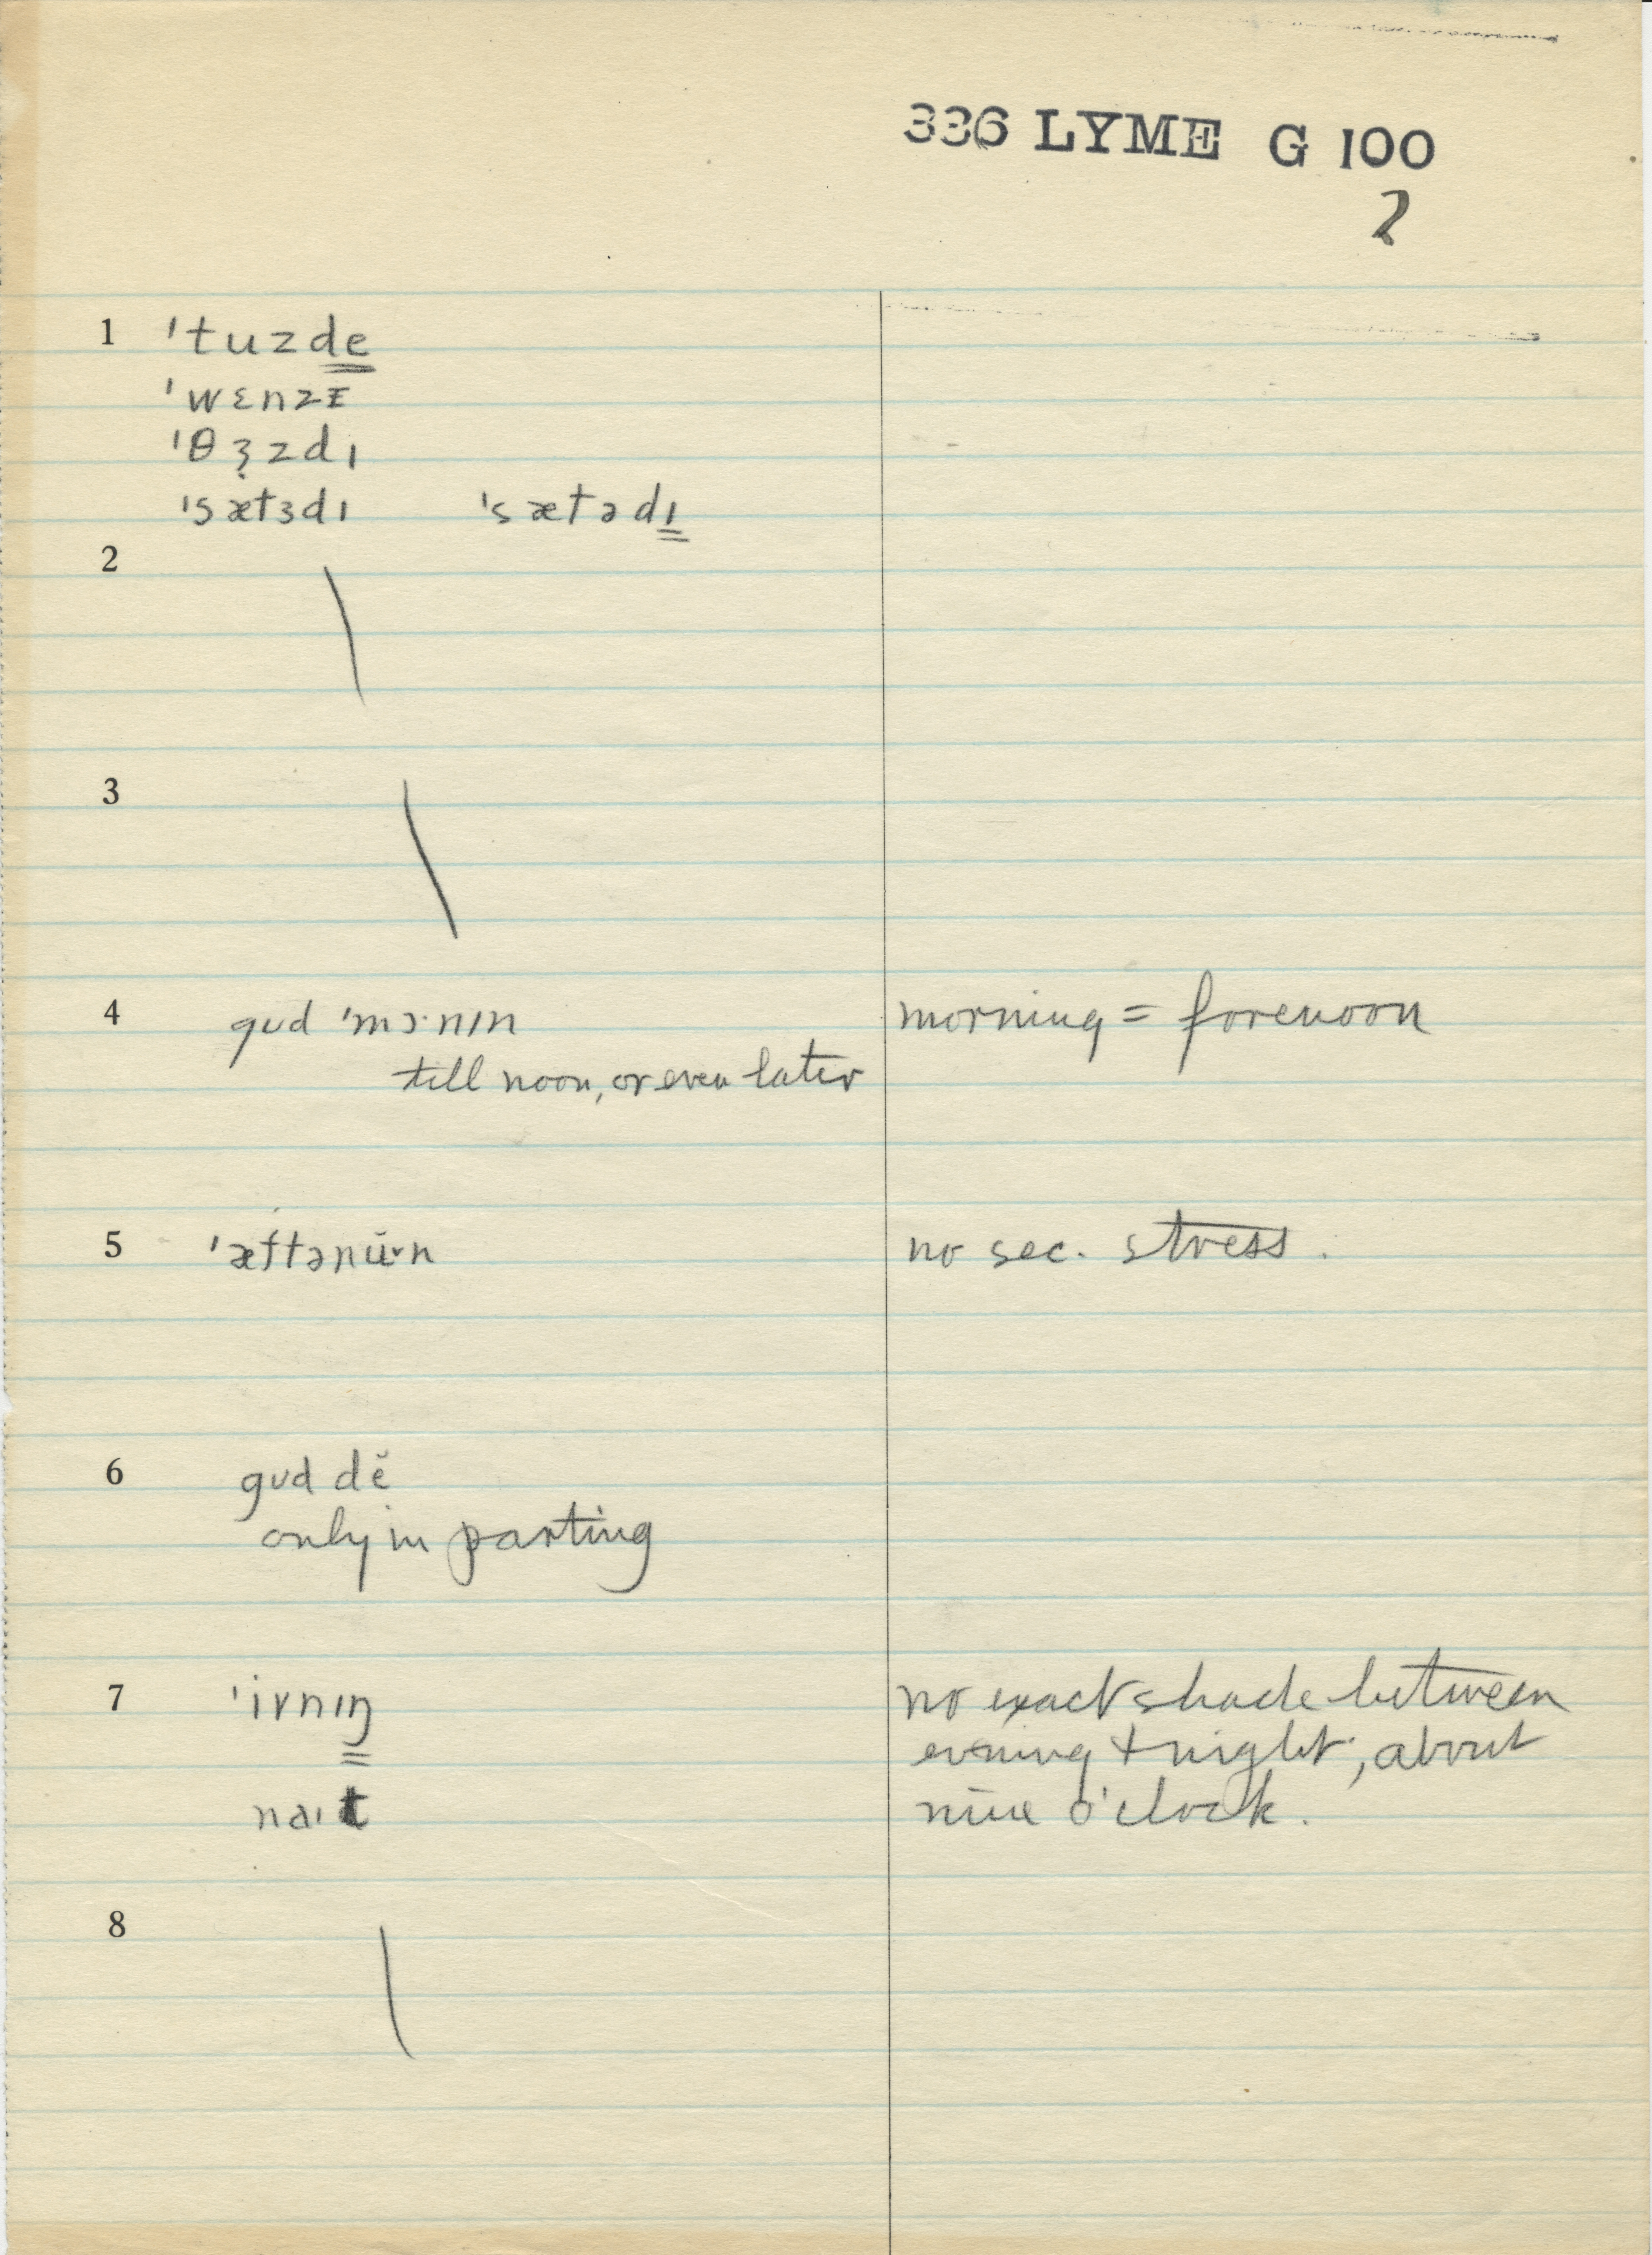 336 LYME G 100
2
1 ˈtuzde
ˈwɛnzɪ
ˈθɜzdɪ
ˈsætɜdɪ ˈsætədɪ
2
3
4 gʊd ˈmɔ·nɪn morning = forenoon
till noon, or even later
5 ˈæftənŭ˞n no sec. stress.
6 gʊd dĕ
only in parting
7 ˈivnɪŋ no exact shade between
evening + night, about
naɪt nine o'clock.
8